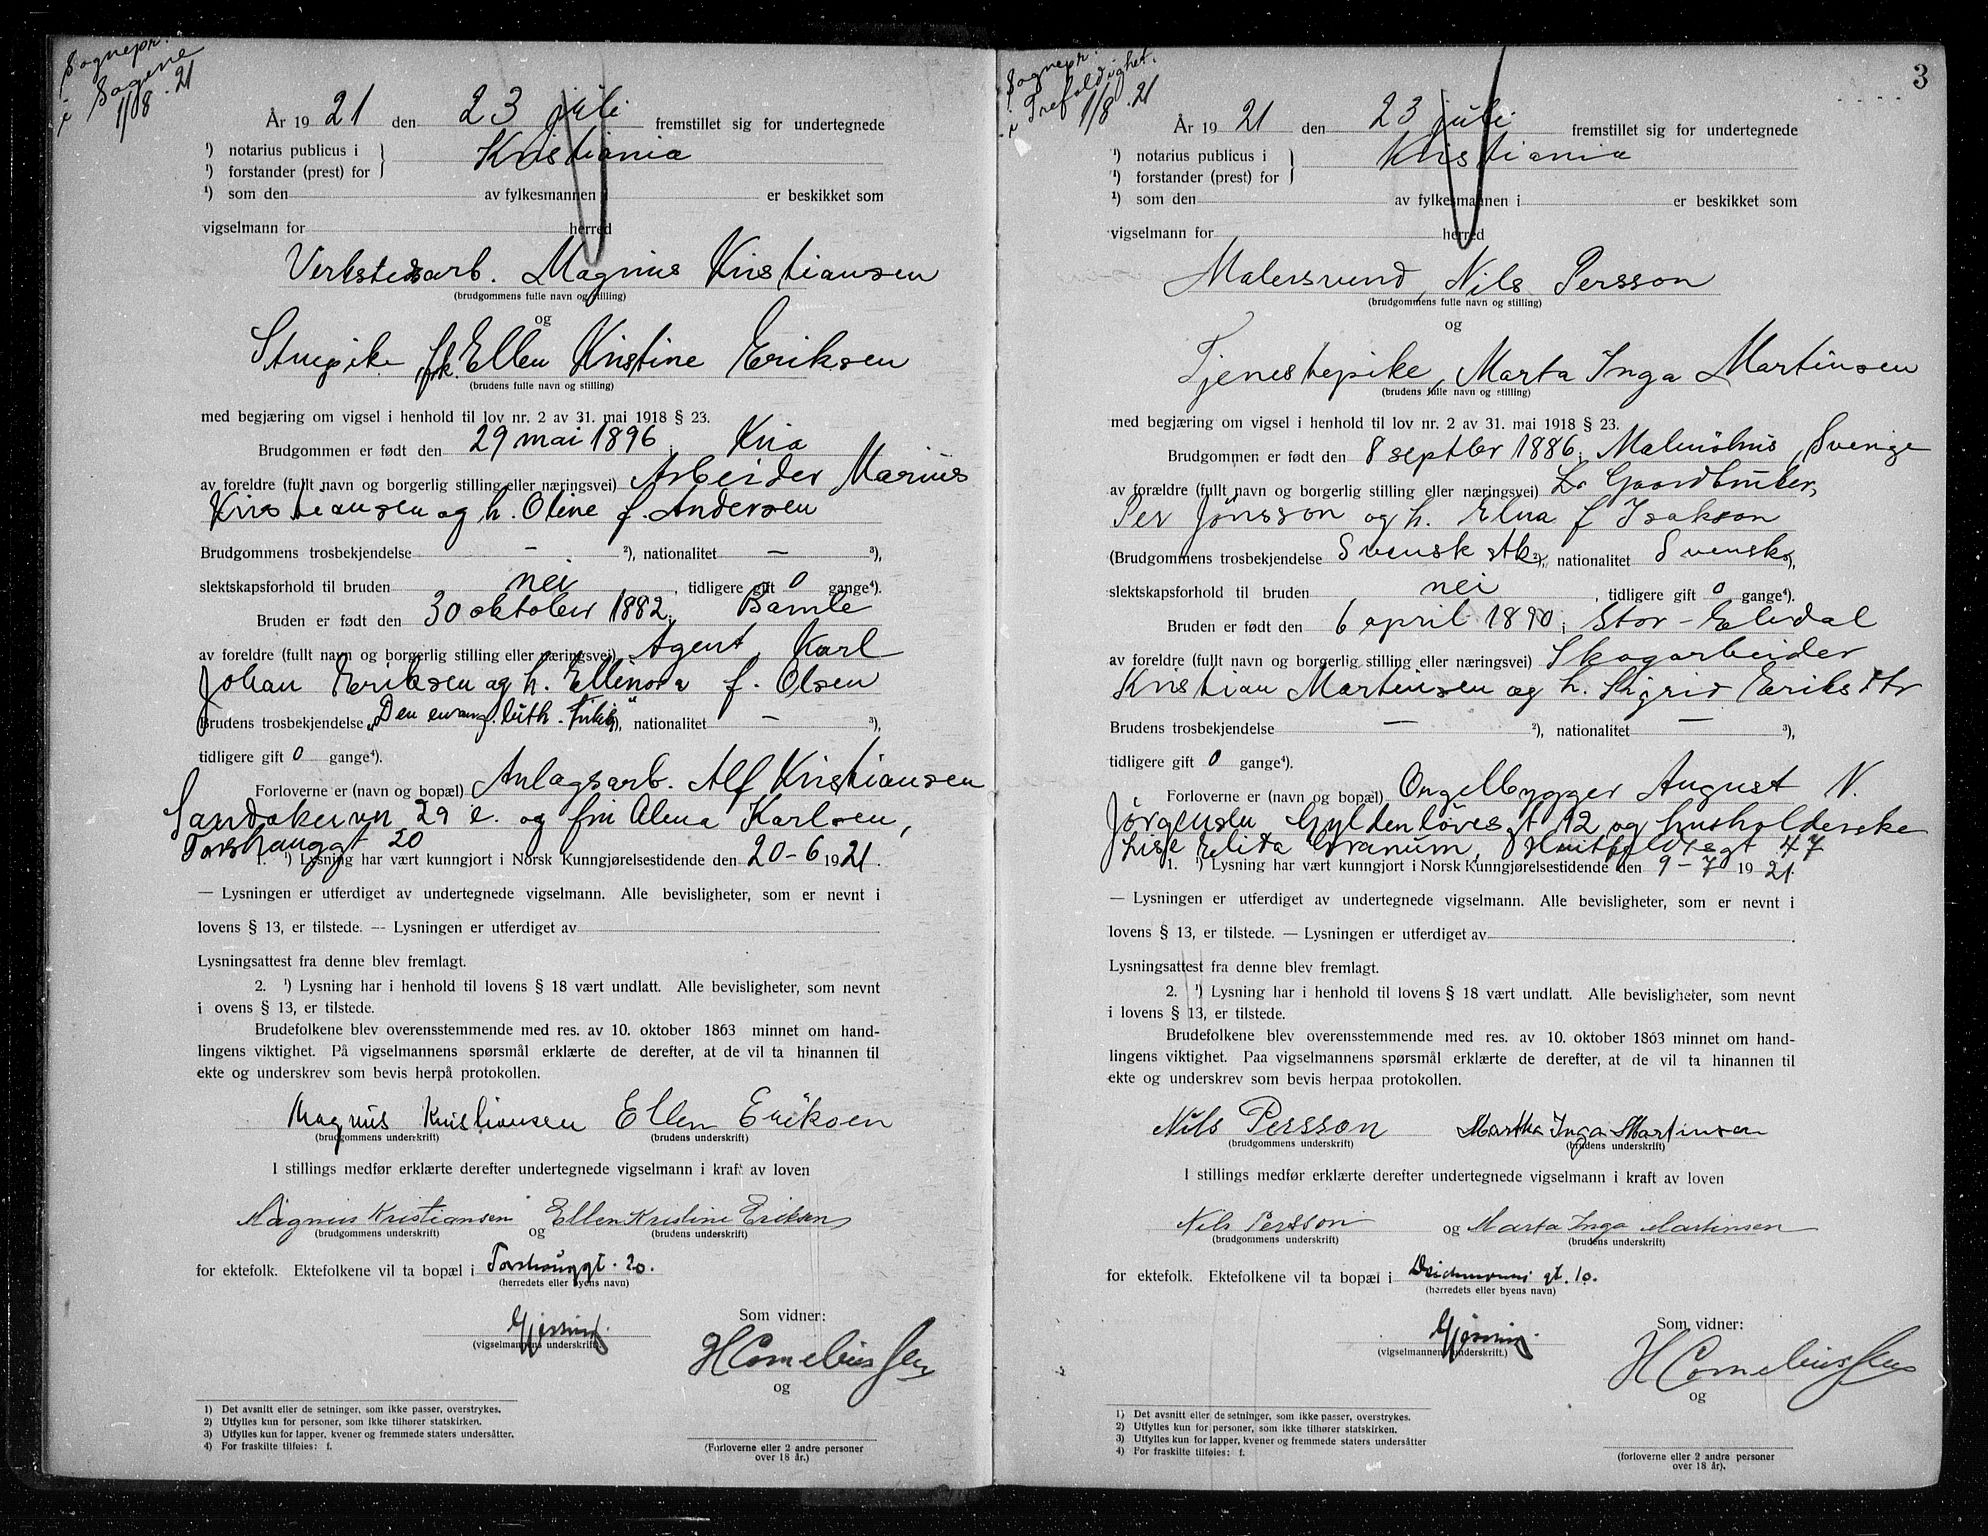 Sognepr.
i Sagene
1/8 · 21
År 1921 den 23 juli fremstillet sig for undertegnede
¹) notarius publicus i } Kristiania
¹) forstander (prest) for
¹) som den av fylkesmannen i er beskikket som
vigselmann for herred
Verkstedsarb. Magnus Kristiansen
(brudgommens fulle navn og stilling)
og
Stuepike, frk. Ellen Kristine Eriksen
(brudens fulle navn og stilling)
med begjæring om vigsel i henhold til lov nr. 2 av 31. mai 1918 § 23.
Brudgommen er født den 29 mai 1896, Kria
av foreldre (fullt navn og borgerlig stilling eller næringsvei) Arbeider Marius
Kristiansen og h. Oline f. Andersen
Brudgommens trosbekjendelse — ²), nationalitet — ³),
slektskapsforhold til bruden nei, tidligere gift 0 gange⁴).
Bruden er født den 30 oktober 1882, Bamle
av foreldre (fullt navn og borgerlig stilling eller næringsvei) Agent Karl
Johan Eriksen og h. Ellinora f. Olsen
Brudens trosbekjendelse „Den evang. luth. frikk", nationalitet — ³),
tidligere gift 0 gange⁴).
Forloverne er (navn og bopæl) Anlagsarb. Alf Kristiansen
Sandakervn 29 e. og fru Alma Karlsen,
Torshauggt 20
1. ¹) Lysning har vært kunngjort i Norsk Kunngjørelsestidende den 20-6 1921.
— Lysningen er utferdiget av undertegnede vigselmann. Alle bevisligheter, som er nevnt i
lovens § 13, er tilstede. — Lysningen er utferdiget av
Lysningsattest fra denne blev fremlagt.
2. ¹) Lysning har i henhold til lovens § 18 vært undlatt. Alle bevisligheter, som nevnt
i ovens § 13, er tilstede.
Brudefolkene blev overensstemmende med res. av 10. oktober 1863 minnet om hand-
lingens viktighet. På vigselmannens spørsmål erklærte de derefter, at de vil ta hinannen til
ekte og underskrev som bevis herpå protokollen.
Magnus Kristiansen Ellen Eriksen
(brudgommens underskrift) (brudens underskrift)
I stillings medfør erklærte derefter undertegnede vigselmann i kraft av loven
Magnus Kristiansen og Ellen Kristine Eriksen
(brudgommens underskrift) (brudens underskrift)
for ektefolk. Ektefolkene vil ta bopæl i Torshauggt. 20.
(herredets eller byens navn)
Som vidner:
Gjessing.
(vigselmannens underskrift.)
H Cornelius
og
1) Det avsnitt eller de setninger, som ikke passer, overstrykes.
2) Utfylles kun for personer, som ikke tilhører statskirken.
3) Utfylles kun for lapper, kvener og fremmede staters undersåtter.
4) For fraskilte tilføies: f.
(Forloverne eller 2 andre personer
over 18 år.)
3
Sognepr.
i Trefoldighet.
1/8 · 21
År 1921 den 23 juli fremstillet sig for undertegnede
¹) notarius publicus i } Kristiania
¹) forstander (prest) for
¹) som den av fylkesmannen i er beskikket som
vigselmann for herred
Malersvend, Nils Persson
(brudgommens fulle navn og stilling)
og
Tjenestepike, Marta Inga Martinsen
(brudens fulle navn og stilling)
med begjæring om vigsel i henhold til lov nr. 2 av 31. mai 1918 § 23.
Brudgommen er født den 8 septbr 1886, Malmöhus, Sverige
av forældre (fullt navn og borgerlig stilling eller næringsvei) Gaardbruker,
Per Jönsson og h. Elna f Isakson
(Brudgommens trosbekjendelse Svensk stk ²), nationalitet Svensk ³),
slektskapsforhold til bruden nei, tidligere gift 0 gange⁴).
Bruden er født den 6 april 1890, Stor-Elvdal
av foreldre (fullt navn og borgerlig stilling eller næringsvei) Skogarbeider
Kristian Martinsen og h. Sigrid Eriksdtr
Brudens trosbekjendelse — ²), nationalitet — ³),
tidligere gift 0 gange⁴).
Forloverne er (navn og bopæl) Orgelbygger August N.
Jørgensen Gyldenløvesgt 12 og husholderske
Lise Elida Granum, Huitfeldtsgt 47
1. ¹) Lysning har vært kunngjort i Norsk Kunngjørelsestidende den 9-7 1921.
— Lysningen er utferdiget av undertegnede vigselmann. Alle bevisligheter, som er nevnt i
lovens § 13, er tilstede. — Lysningen er utferdiget av
Lysningsattest fra denne blev fremlagt.
2. ¹) Lysning har i henhold til lovens § 18 vært undlatt. Alle bevisligheter, som nevnt
i lovens § 13, er tilstede.
Brudefolkene blev overensstemmende med res. av 10. oktober 1863 minnet om hand-
lingens viktighet. Paa vigselmannens spørsmål erklærte de derefter, at de vil ta hinannen til
ekte og underskrev som bevis herpaa protokollen.
Nils Persson Martha Inga Martinsen
(brudgommens underskrift) (brudens underskrift)
I stillings medfør erklærte derefter undertegnede vigselmann i kraft av loven
Nils Persson og Marta Inga Martinsen
(brudgommens underskrift) (brudens underskrift)
for ektefolk. Ektefolkene vil ta bopæl i Deichmansgt. 10.
(herredets eller byens navn)
Som vidner:
Gjessing.
(vigselmannens underskrift.)
H Cornelius
og
1) Det avsnitt eller de setninger, som ikke passer, overstrykes.
2) Utfylles kun for personer, som ikke tilhører statskirken.
3) Utfylles kun for lapper, kvener og fremmede staters undersåtter
4) For fraskilte tilføies: f.
(forloverne eller 2 andre personer
over 18 år).